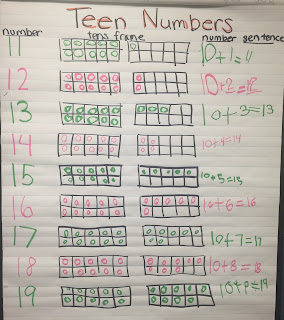 Teen Numbers
number tens frame number sentence
11 10+1=11
12 10+2=12
13 10+3=13
14 10+4=14
15 10+5=15
16 10+6=16
17 10+7=17
18 10+8=18
19 10+9=19